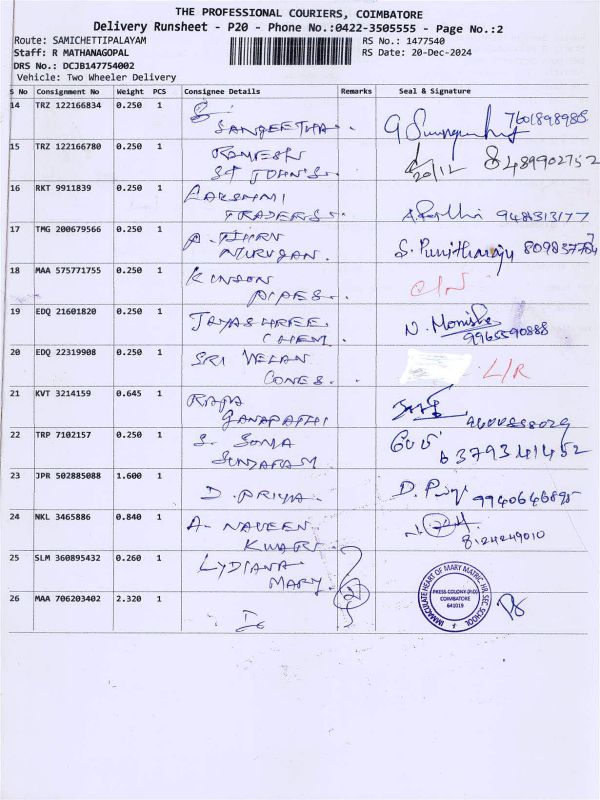 THE PROFESSIONAL COURIERS, COIMBATORE
Delivery Runsheet - P20 - Phone No.:0422-3505555 - Page No.:2
Route: SAMICHETTIPALAYAM RS No.: 1477540
Staff: R MATHANAGOPAL RS Date: 20-Dec-2024
DRS No.: DCJB147754002
Vehicle: Two Wheeler Delivery
S No Consignment No Weight PCS Consignee Details Remarks Seal & Signature
14 TRZ 122166834 0.250 1 S. 7601898985
SANGEETHA.
15 TRZ 122166780 0.250 1 RAMESH 8489902752
ST JOHN'S. 20/12
16 RKT 9911839 0.250 1 LAKSHMI
TRADERS. 948313177
17 TMG 200679566 0.250 1 P. THIRU S. Punitharaju
MURUGAN.
18 MAA 575771755 0.250 1 KINSON
PIPES.
19 EDQ 21601820 0.250 1 JAYASHREE N. Monisha
CHEM. 9965590888
20 EDQ 22319908 0.250 1 SRI VELAN L/R
CONES.
21 KVT 3214159 0.645 1 RAJA
GANAPATHI
22 TRP 7102157 0.250 1 S. SOMA
SUNDARAM 6379341452
23 JPR 502885088 1.600 1 D. PRIYA. D. Priya 9940646895
24 NKL 3465886 0.840 1 A. NAVEEN
KUMAR. 8124249010
25 SLM 360895432 0.260 1 LYDIANA
MARY.
26 MAA 706203402 2.320 1
IMMACULATE HEART OF MARY MATRIC. HR. SEC. SCHOOL
PRESS COLONY (P.O)
COIMBATORE
641019